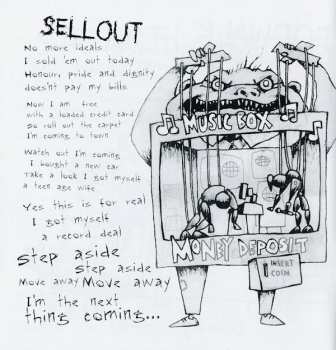 SELLOUT
No more ideals
I sold 'em out today
Honour, pride and dignity
doesn't pay my bills
Now I am free
with a loaded credit card
So roll out the carpet
I'm coming to town
Watch out I'm coming
I bought a new car
Take a look I got myself
a teen age wife
Yes this is for real
I got myself
a record deal
Step aside
Step aside
Move away Move away
I'm the next
thing coming...
MUSIC BOX
MONEY DEPOSIT
INSERT
COIN